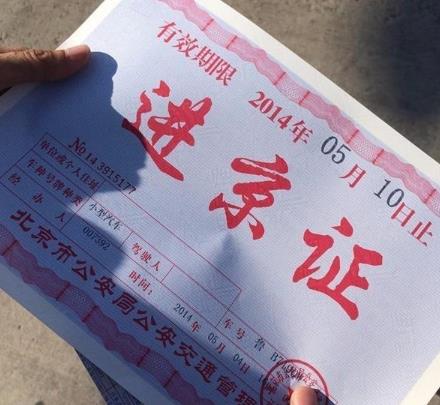 有效期限 2014年 05月 10日止
进京证
No143915177
单位或个人住址
车种号牌种类 小型汽车 车号 鲁
经办人 007392 驾驶人
时间: 2014 年 05 月 04 日
北京市公安局公安交通管理